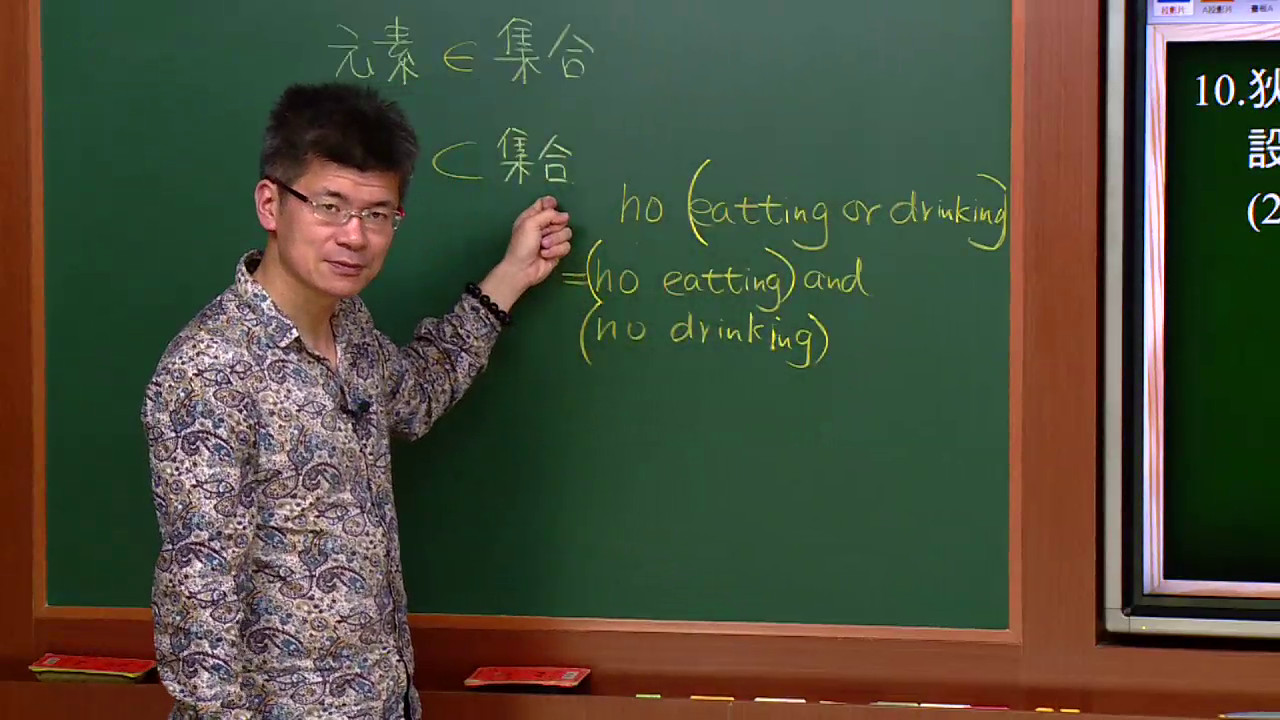 元素 ∈ 集合
⊂ 集合
no (eatting or drinking)
=(no eatting) and
(no drinking)
10.狄
設
(2